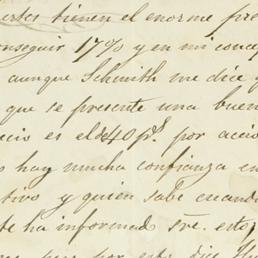 ertes tienen el enorme pre
onseguir 17% y en mi concep
aunque Schmith me dice q
que se presente una buen
ecio es el $40 ps. por accio
s hay mucha confianza en
tivo y quien sabe cuando
te ha informado sre. esto,
por este dice